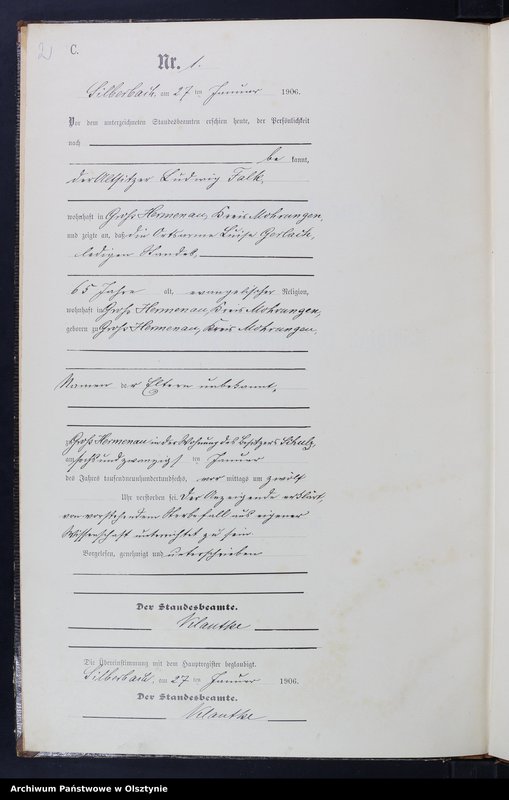 2
C.
Nr. 1.
Silberbach, am 27 ten Januar 1906.
Vor dem unterzeichneten Standesbeamten erschien heute, der Persönlichkeit
nach
be kannt,
der Altsitzer Ludwig Falk,
wohnhaft in Groß Hermenau, Kreis Mohrungen,
und zeigte an, daß die Ortsarme Luise Gerlach,
ledigen Standes,
65 Jahre alt, evangelischer Religion,
wohnhaft in Groß Hermenau, Kreis Mohrungen,
geboren zu Groß Hermenau, Kreis Mohrungen,
Namen der Eltern unbekannt,
zu Groß Hermenau in der Wohnung des Besitzers Schulz,
am sechsundzwanzigsten Januar
des Jahres tausendneunhundertundsechs, vor mittags um zwölf
Uhr verstorben sei. Der Anzeigende erklärt,
von vorstehendem Sterbefall aus eigener
Wissenschaft unterrichtet zu sein.
Vorgelesen, genehmigt und unterschrieben
Der Standesbeamte.
Klautke
Die Übereinstimmung mit dem Hauptregister beglaubigt.
Silberbach, am 27 ten Januar 1906.
Der Standesbeamte.
Klautke
Archiwum Państwowe w Olsztynie